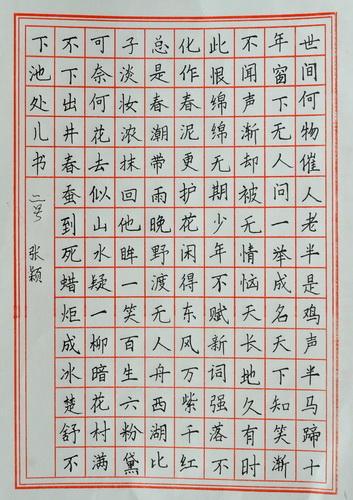 世间何物催人老半是鸡声半马蹄十
年窗下无人问一举成名天下知笑渐
不闻声渐却被无情恼天长地久有时
此恨绵绵无期少年不赋新词强落不
化作春泥更护花闲得东风万紫千红
总是春潮带雨晚野渡无人舟西湖比
子淡妆浓抹回他眸一笑百生六粉黛
可奈何花去似山水疑一柳暗花村满
不下出井春蚕到死蜡炬成冰楚舒不
下池处儿书 二号 张颖